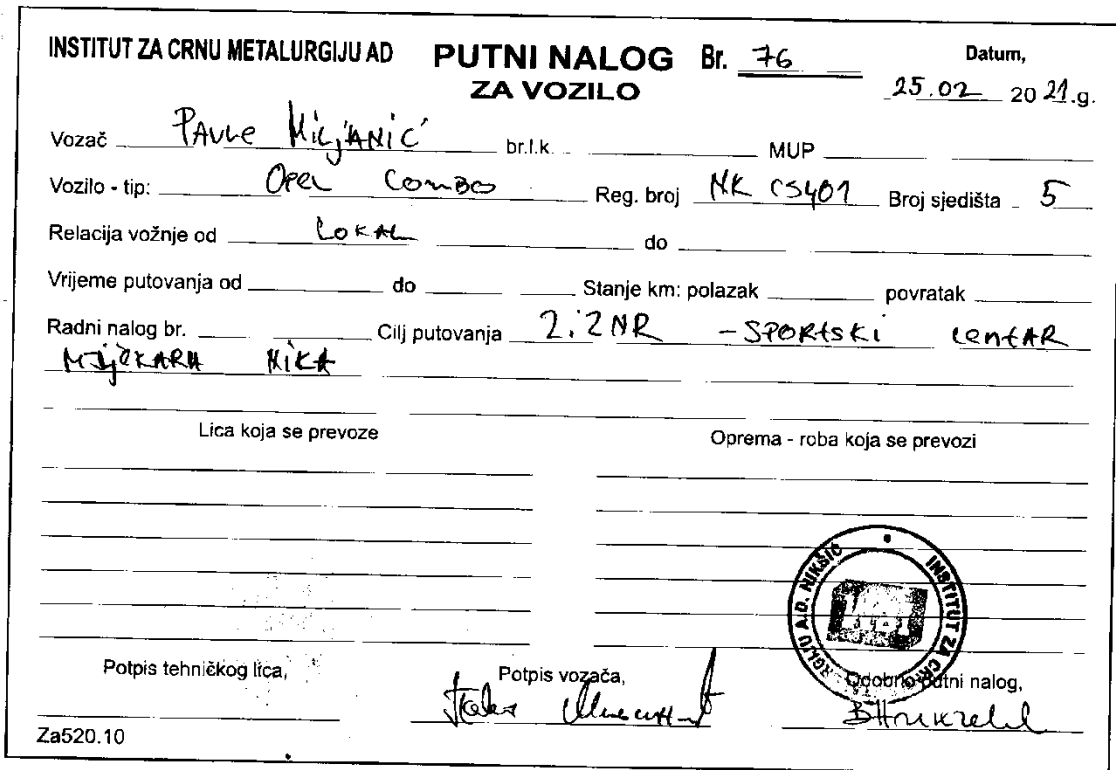 INSTITUT ZA CRNU METALURGIJU AD PUTNI NALOG Br. 76 Datum,
ZA VOZILO 25.02 2021.g.
Vozač PAVLE MILJANIĆ br.l.k. MUP
Vozilo - tip: OPEL COMBO Reg. broj NK CS401 Broj sjedišta 5
Relacija vožnje od LOKAL do
Vrijeme putovanja od do Stanje km: polazak povratak
Radni nalog br. Cilj putovanja 2:2NR - SPORTSKI CENTAR
NIKA
Lica koja se prevoze Oprema - roba koja se prevozi
INSTITUT ZA CR RGIJU A.D. NIKŠIĆ
Potpis tehničkog lica, Potpis vozača, Odobrio putni nalog,
Za520.10